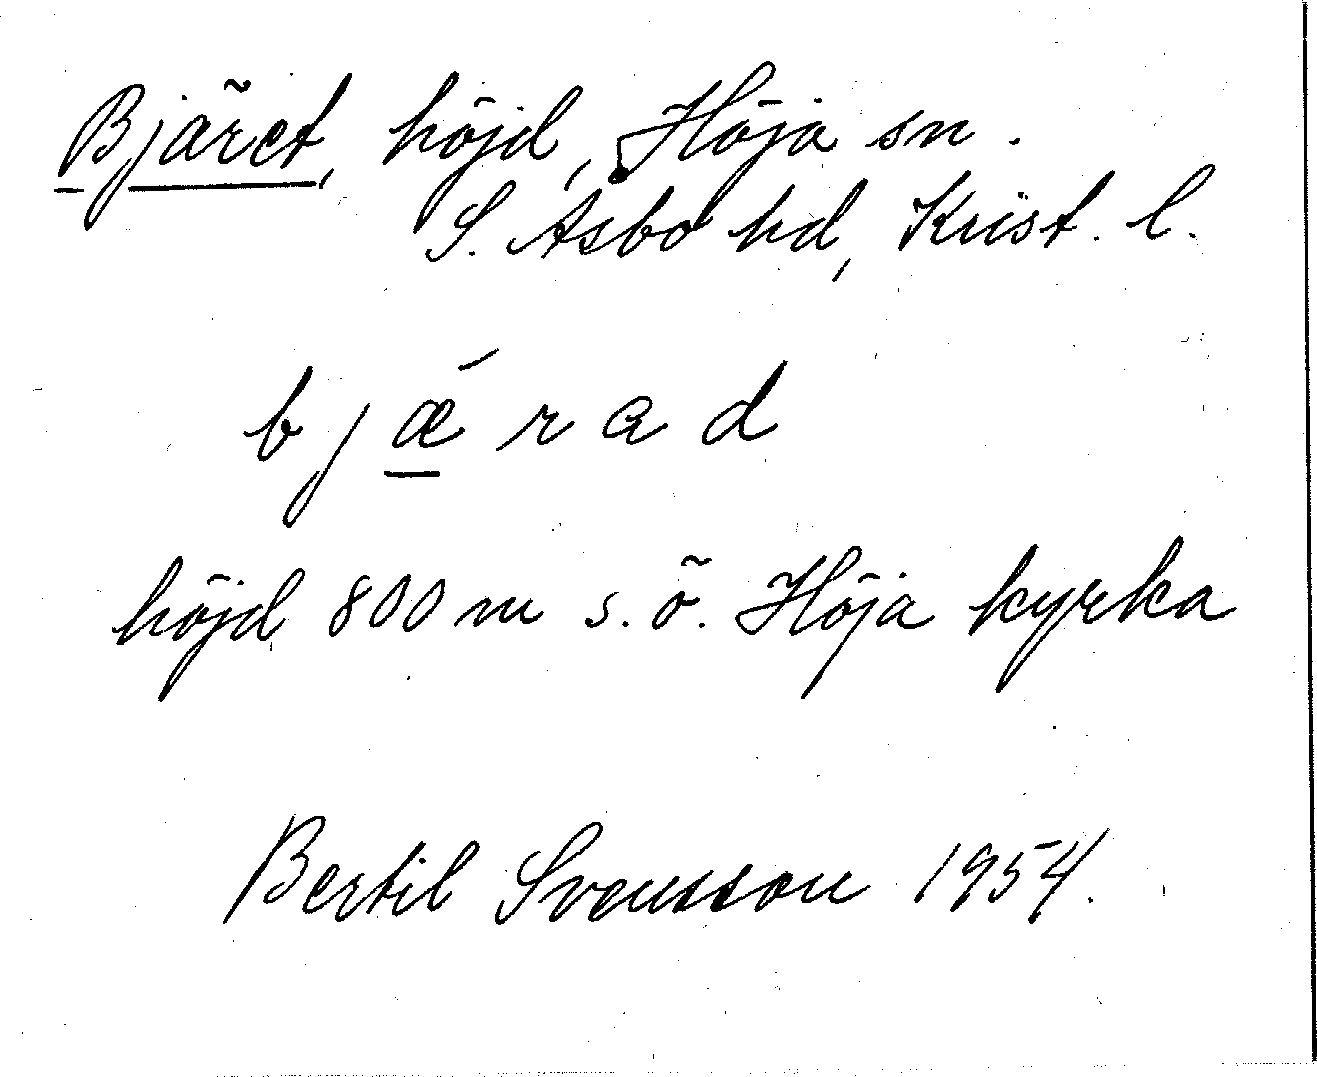 Bjäret, höjd, Höja sn.
S. Åsbo hd, Krist. l.
bjǽrad
höjd 800 m s.ö. Höja kyrka
Bertil Svensson 1954.